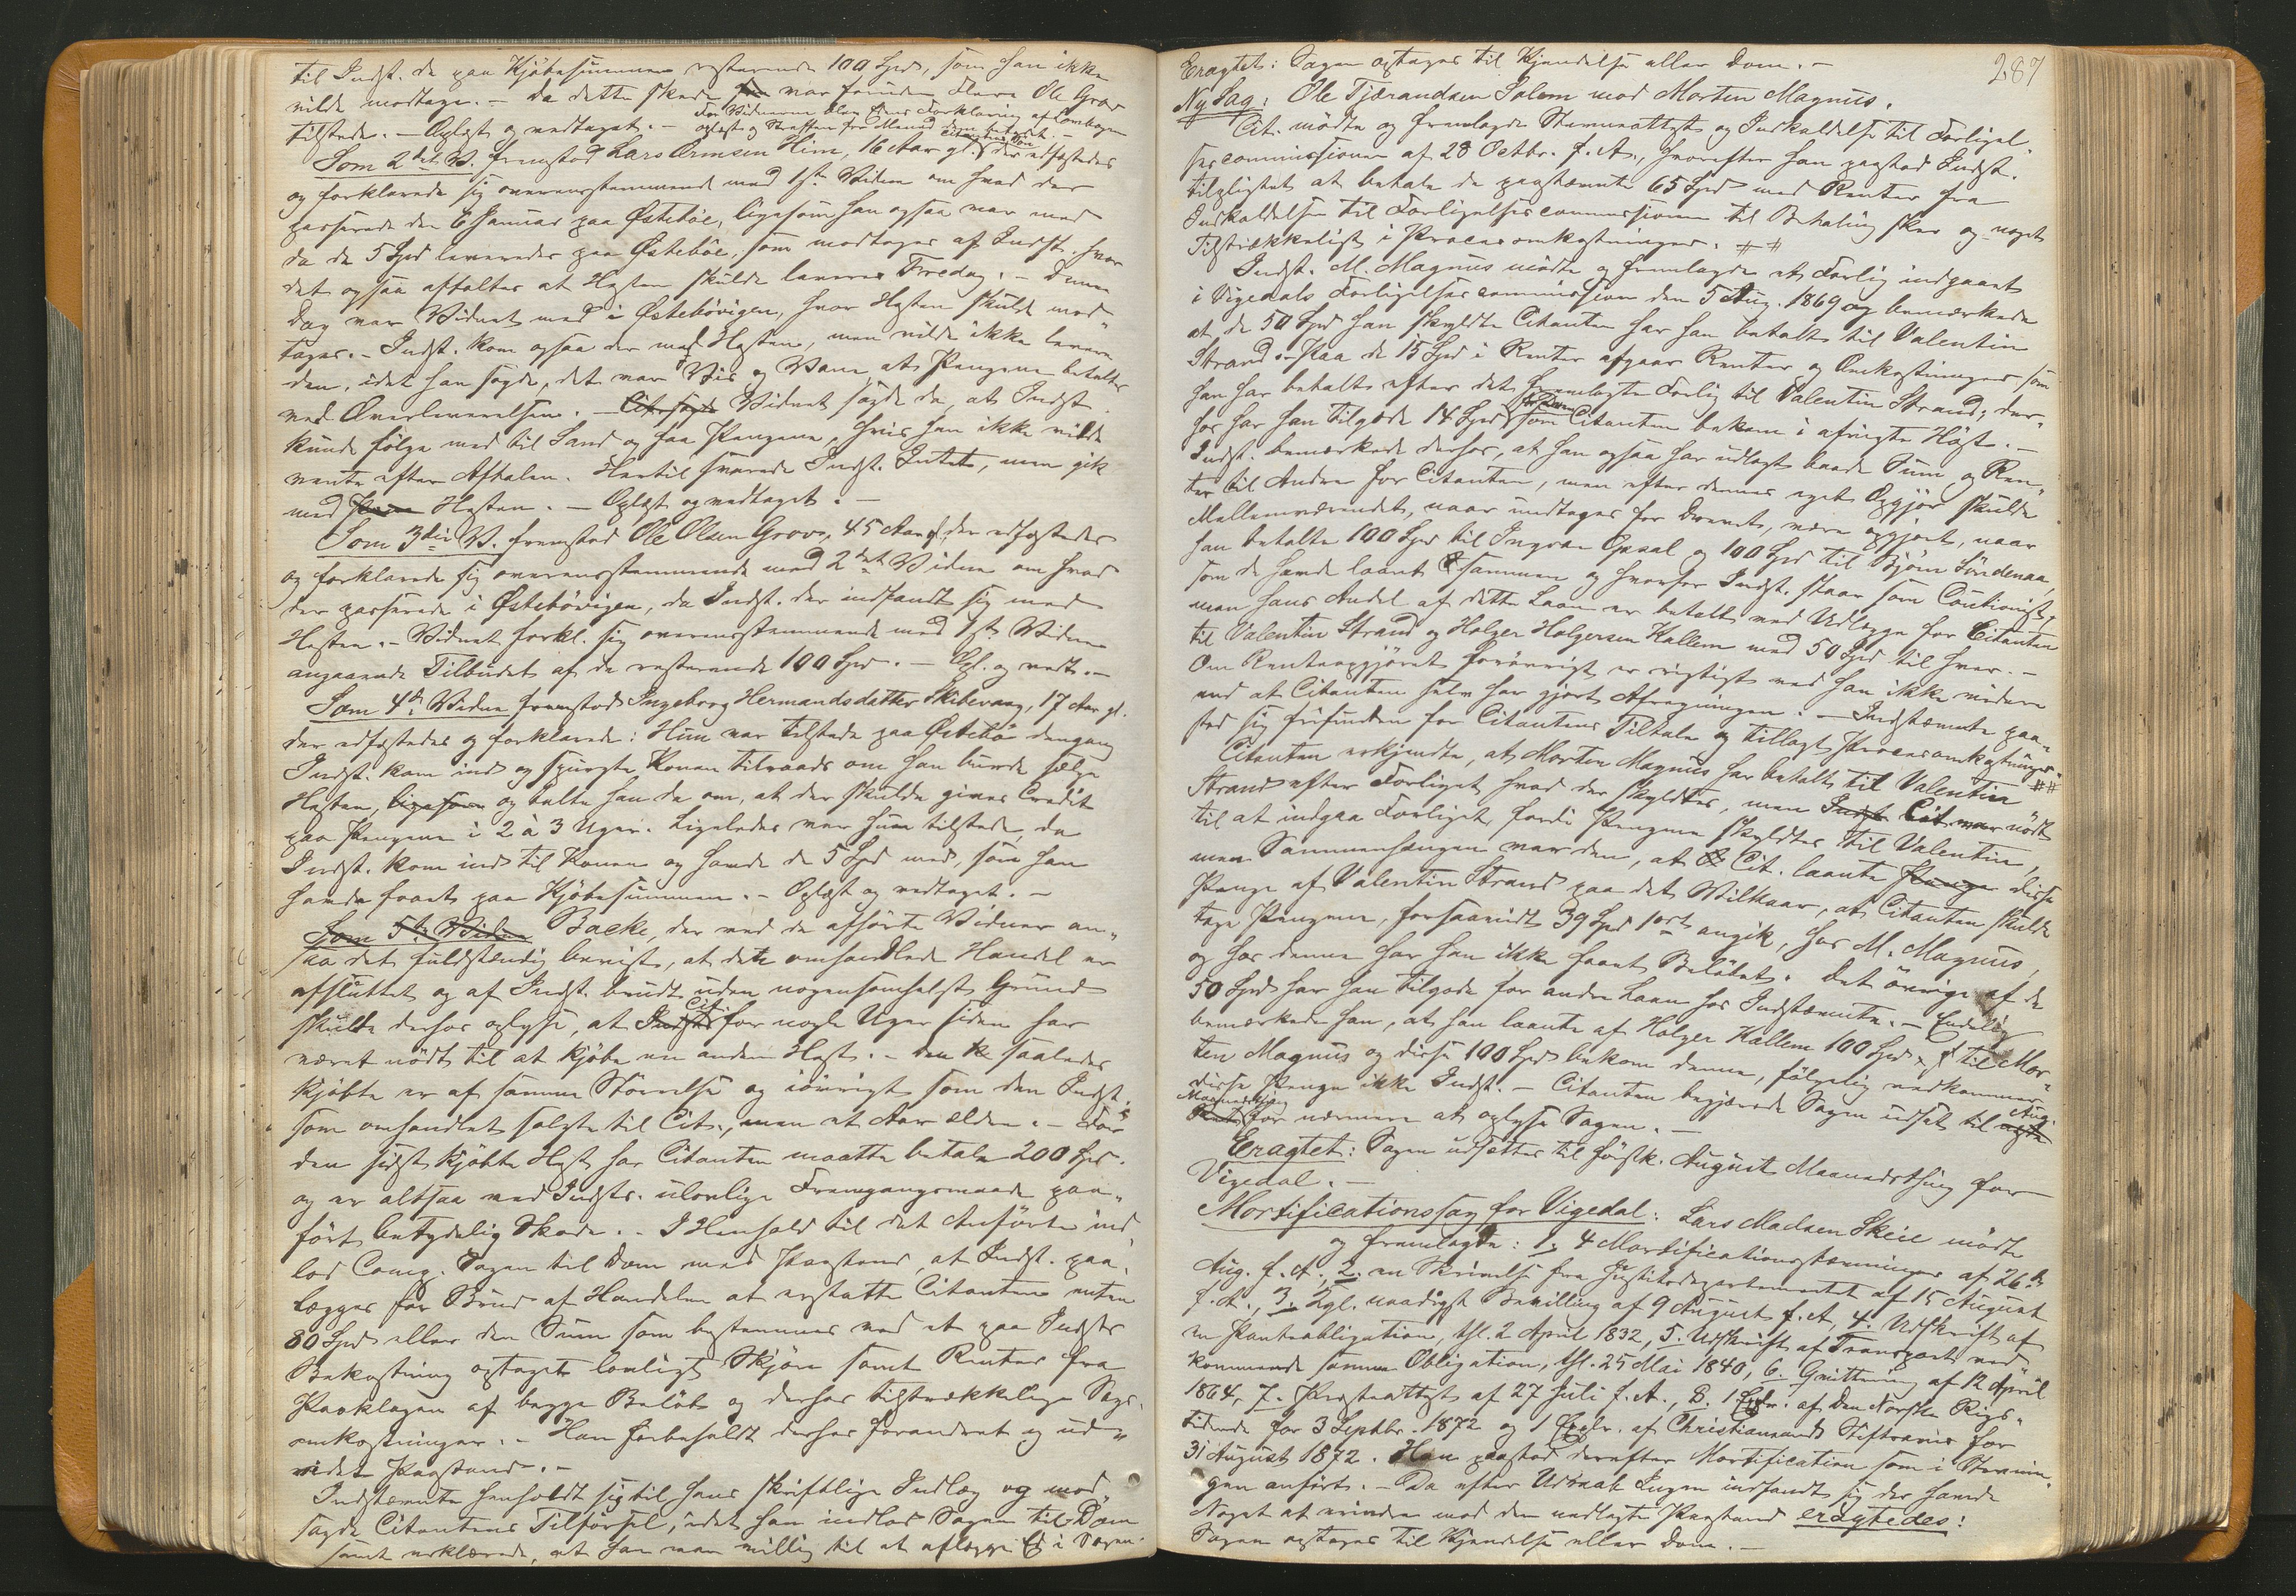 til Indst. de paa Kjøbesummen resterende 100 Spd, som han ikke
vilde modtage. – Da dette skede var foruden Flere Ole Grov
tilstede. – Oplæst og vedtaget. –
Som 2det V. fremstod Lars Ormsen Hiim, 16 Aar gl. der edfæstedes
og forklarede sig overensstemmende med 1ste Vidne om hvad der
passerede den 6 Januar paa Østebøe, ligesom han ogsaa var med
da de 5 Spd leveredes paa Østebøe, som modtoges af Indst. hvor
det ogsaa aftaltes at Hesten skulde leveres Fredag. – Denne
Dag var Vidnet med i Østebøvigen, hvor Hesten skulde mod-
tages. – Indst. kom ogsaa der med Hesten, men vilde ikke levere
den, idet han sagde, det var Viis og Vane at Pengene betaltes
ved Overleverelsen. – Cit. sagde Vidnet sagde da, at Indst.
kunde følge med til Sand og faa Pengene, hvis han ikke vilde
vente efter Aftalen. Hertil svarede Indst. Intet, men gik
med Hesten. – Oplæst og vedtaget. –
Som 3die V. fremstod Ole Olsen Grov, 45 Aar gl., der edfæstedes
og forklarede sig overensstemmende med 2det Vidne om hvad
der passerede i Østebøvigen, da Indst. der indfandt sig med
Hesten. – Vidnet forkl. sig overensstemmende med 1ste Vidne
angaaende Tilbudet af de resterende 100 Spd. – Opl. og vedt. –
Som 4de Vidne fremstod Ingeborg Hermandsdatter Skibevaag, 17 Aar gl.
der edfæstedes og forklarede: Hun var tilstede paa Østebø dengang
Indst. kom ind og spurgte Konen tilraads om han burde sælge
Hesten, ligesom og talte han da om, at der skulde gives Credit
paa Pengene i 2 à 3 Uger. Ligeledes var hun tilstede, da
Indst. kom ind til Konen og havde de 5 Spd med, som han
havde faaet paa Kjøbesummen. – Oplæst og vedtaget. –
Som 5te Vidne Backe, der ved de afhørte Vidner an-
saa det fuldstændig bevist, at det omhandlede Handel er
afsluttet og af Indst. brudt uden nogensomhelst Grund
skulde derhos oplyse, at Indst. Cit. for nogle Uger siden har
været nødt til at kjøbe en anden Hest. – Den saaledes
kjøbte er af samme Størrelse og iøvrigt som den Indst.
som omhandlet solgte til Cit., men et Aar ældre. – For
den sidst kjøbte Hest har Citanten maatte betale 200 Spd.
og er altsaa ved Indsts. ulovlige Fremgangsmaade paa-
ført betydelig Skade. – I Henhold til det Anførte ind-
lod Comp. Sagen til Dom med Paastand, at Indst. paa-
lægges for Brud af Handelen at erstatte Citanten enten
80 Spd eller den Sum som bestemmes ved et paa Indsts
Bekostning optaget lovligt Skjøn samt Renter fra
Paaklagen af begge Beløb og derhos tilstrækkelige Sags-
omkostninger. – Han forbeholdt derhos forandret og ud-
videt Paastand. –
Indstævnte henholdt sig til hans skriftlige Indlæg og mod-
sagde Citantens Tilførsel, idet han indlod Sagen til Dom
samt erklærede, at han var villig til at aflægge Ed i Sagen.
287
Eragtet: Sagen optages til Kjendelse eller Dom. –
Ny Sag: Ole Tjærandsen Solem mod Morten Magnus.
Cit. mødte og fremlagde Stævneattest og Indkaldelse til Forligel-
sescommissionen af 28 Octbr. f. A., hvorefter han paastod Indst.
tilpligtet at betale de paastævnte 65 Spd med Renter fra
Indkaldelsen til Forligelsescommissionen til Betaling sker og noget
Tilstrækkeligt i Procesomkostninger. ##
Indst. M. Magnus mødte og fremlagde et Forlig indgaaet
i Vigedals Forligelsescommission den 5 Aug. 1869 og bemærkede
at de 50 Spd han skyldte Citanten har han betalt til Valentin
Strand. – Paa de 15 Spd i Renter afgaar Renter og Omkostninger som
han har betalt efter det fremlagte Forlig til Valentin Strand; der-
hos har han tilgode 14 Spd som Citanten bekom i afvigte Høst. –
Indst. bemærkede derhos, at han ogsaa har udlagt baade Sum og Ren-
ter til Andre for Citanten, men efter dennes eget Opgjør skulde
Mellemværendet, naar undtages for Ovennt., være opgjort, naar
han betalte 100 Spd til Ingvar Opsal og 100 Spd til Bjørn Søndenaa,
som de havde laant sammen og hvorfor Indst. staar som Cautionist,
men hans Andel af dette Laan er betalt ved Udlægge for Citanten
til Valentin Strand og Holger Holgersen Kallem med 50 Spd til hver. –
Om Renteopgjøret forøvrigt er rigtigt ved han ikke videre
end at Citanten selv har gjort Afregningen. – Indstævnte paa-
stod sig frifunden for Citantens Tiltale og tillagt Procesomkostninger.
Citanten erkjendte, at Morten Magnus har betalt til Valentin ##
Strand efter Forliget hvad der skyldtes, men Indst. Cit. var nødt
til at indgaa Forliget fordi Pengene skyldtes til Valentin,
men Sammenhængen var den, at Cit. laante Penge disse
Penge af Valentin Strand paa det Vilkaar, at Citanten skulde
tage Pengene, forsaavidt 39 Spd 1 ort angik, hos M. Magnus,
og hos denne har han ikke faaet Beløbet. Det øvrige af de
50 Spd har han tilgode for andre Laan hos Indstævnte. – Endelig
bemærkede han, at han laante af Holger Kallem 100 Spd til Mor-
ten Magnus og disse 100 Spd bekom denne, følgelig vedkommer
disse Penge ikke Indst. – Citanten begjærede Sagen udsat til Aug.
Maanedsthing for nærmere at oplyse Sagen. –
Eragtet: Sagen udsættes til førstk. August Maanedsthing for
Vigedal. –
Mortificationssag for Vigedal: Lars Madsen Skeie mødte
og fremlagde: 1. 4 Mortificationsstævninger af 26de
Aug. f. A., 2. en Skrivelse fra Justitsdepartementet af 15 August
f. A., 3. Kgl. naadigst Bevilling af 9 August f. A., 4. Udskrift af
en Panteobligation, thl. 2 April 1832, 5. Udskrift af Transport ved-
kommende samme Obligation, thl. 25 Mai 1840, 6. Qvittering af 12 April
1864, 7. Præsteattest af 27 Juli f. A., 8. 1 Expl. af Den Norske Rigs-
tidende for 3 Septbr. 1872 og 1 Explr. af Christianssands Stiftsavis for
31 August 1872. Han paastod derefter Mortification som i Stævnin-
gen anført. – Da efter Udraab Ingen indfandt sig der havde
Noget at erindre mod den nedlagte Paastand eragtedes:
Sagen optages til Kjendelse eller Dom. –